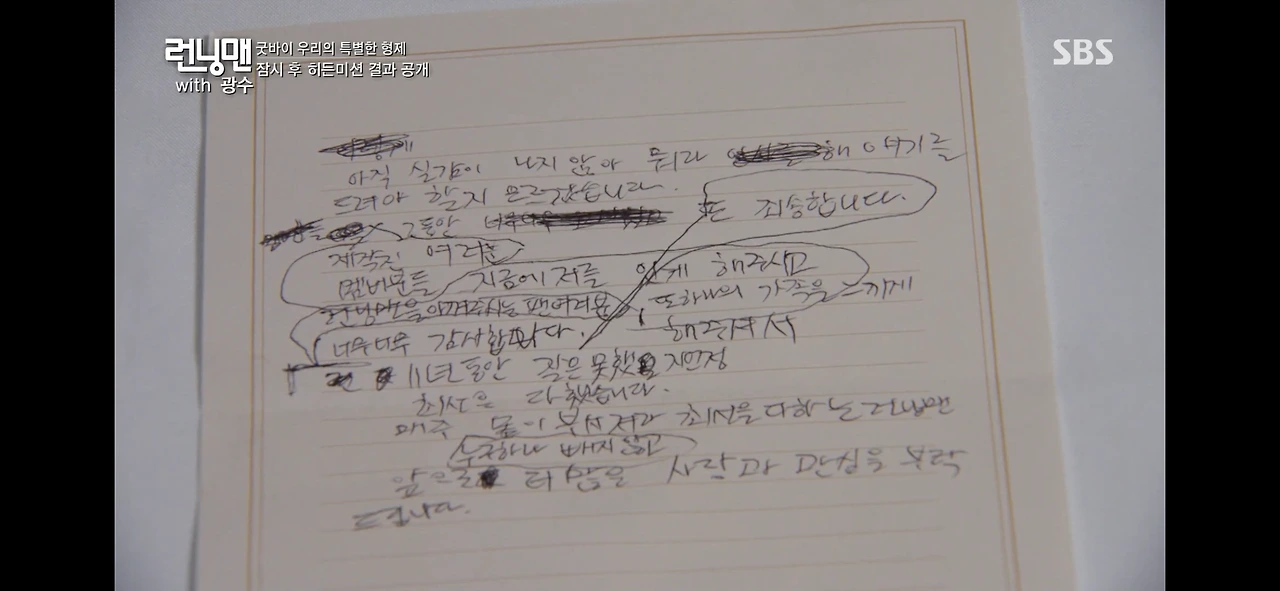 런닝맨 굿바이 우리의 특별한 형제
잠시 후 히든미션 결과 공개
with 광수
SBS
아직 실감이 나지 않아 뭐라 해 얘기를
드려야 할지 모르겠습니다.
그동안 너무 또 죄송합니다.
제작진 여러분
멤버분들 지금에 저를 있게 해주시고
런닝맨을 아껴주시는 팬여러분 또하나의 가족을 느끼게
너무너무 감사합니다. 해주셔서
11년동안 잘은 못했 지언정
최선은 다 했습니다.
매주 몸이 부서져라 최선을 다하는 런닝맨
누구하나 빠지지않고
앞으로 더 많은 사랑과 관심을 부탁
드립니다.